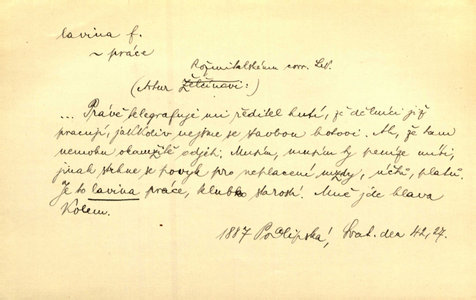 lavina f.
~ práce
Rožmitalském corr. Lit.
(Artur Želčínavi:)
... Právě telegrafuje mi ředitel hutí, že dělníci již
pracují, jakkoliv nejsme se stavbou hotovi. Ah, že tam
nemohu okamžitě odjeti. Musím, musím ty peníze míti,
jinak strhne se povyk pro neplacení mzdy, účtů, platů.
Je to lavina práce, klubko starostí. Mně jde hlava
kolem.
1887 Podlipská, Květ. den 42, 27.